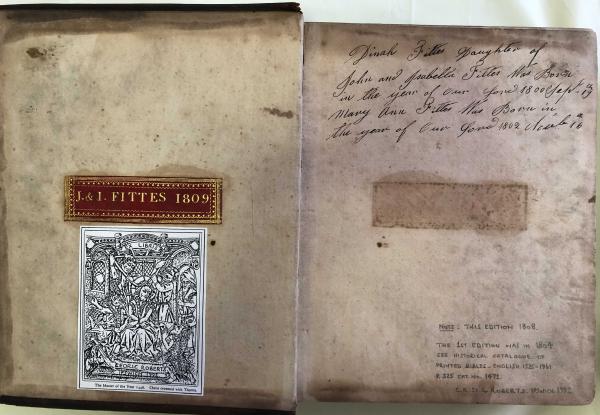 J. & I. FITTES 1809
EX LIBRIS
CEDRIC ROBERTS
The Master of the Year 1446. Christ crowned with Thorns.
Dinah Fittes Daughter of
John and Isabella Fittes Was Born
in the year of Our Lord 1800 Sept.
Mary Ann Fittes Was Born in
the year of Our Lord 1802
NOTE: THIS EDITION 1808.
THE 1ST EDITION WAS IN 1804
SEE HISTORICAL CATALOGUE OF
PRINTED BIBLES. ENGLISH 1525-1961
P.325 CAT. NO. 1471.
ROBERTS. IPSWICH 1992